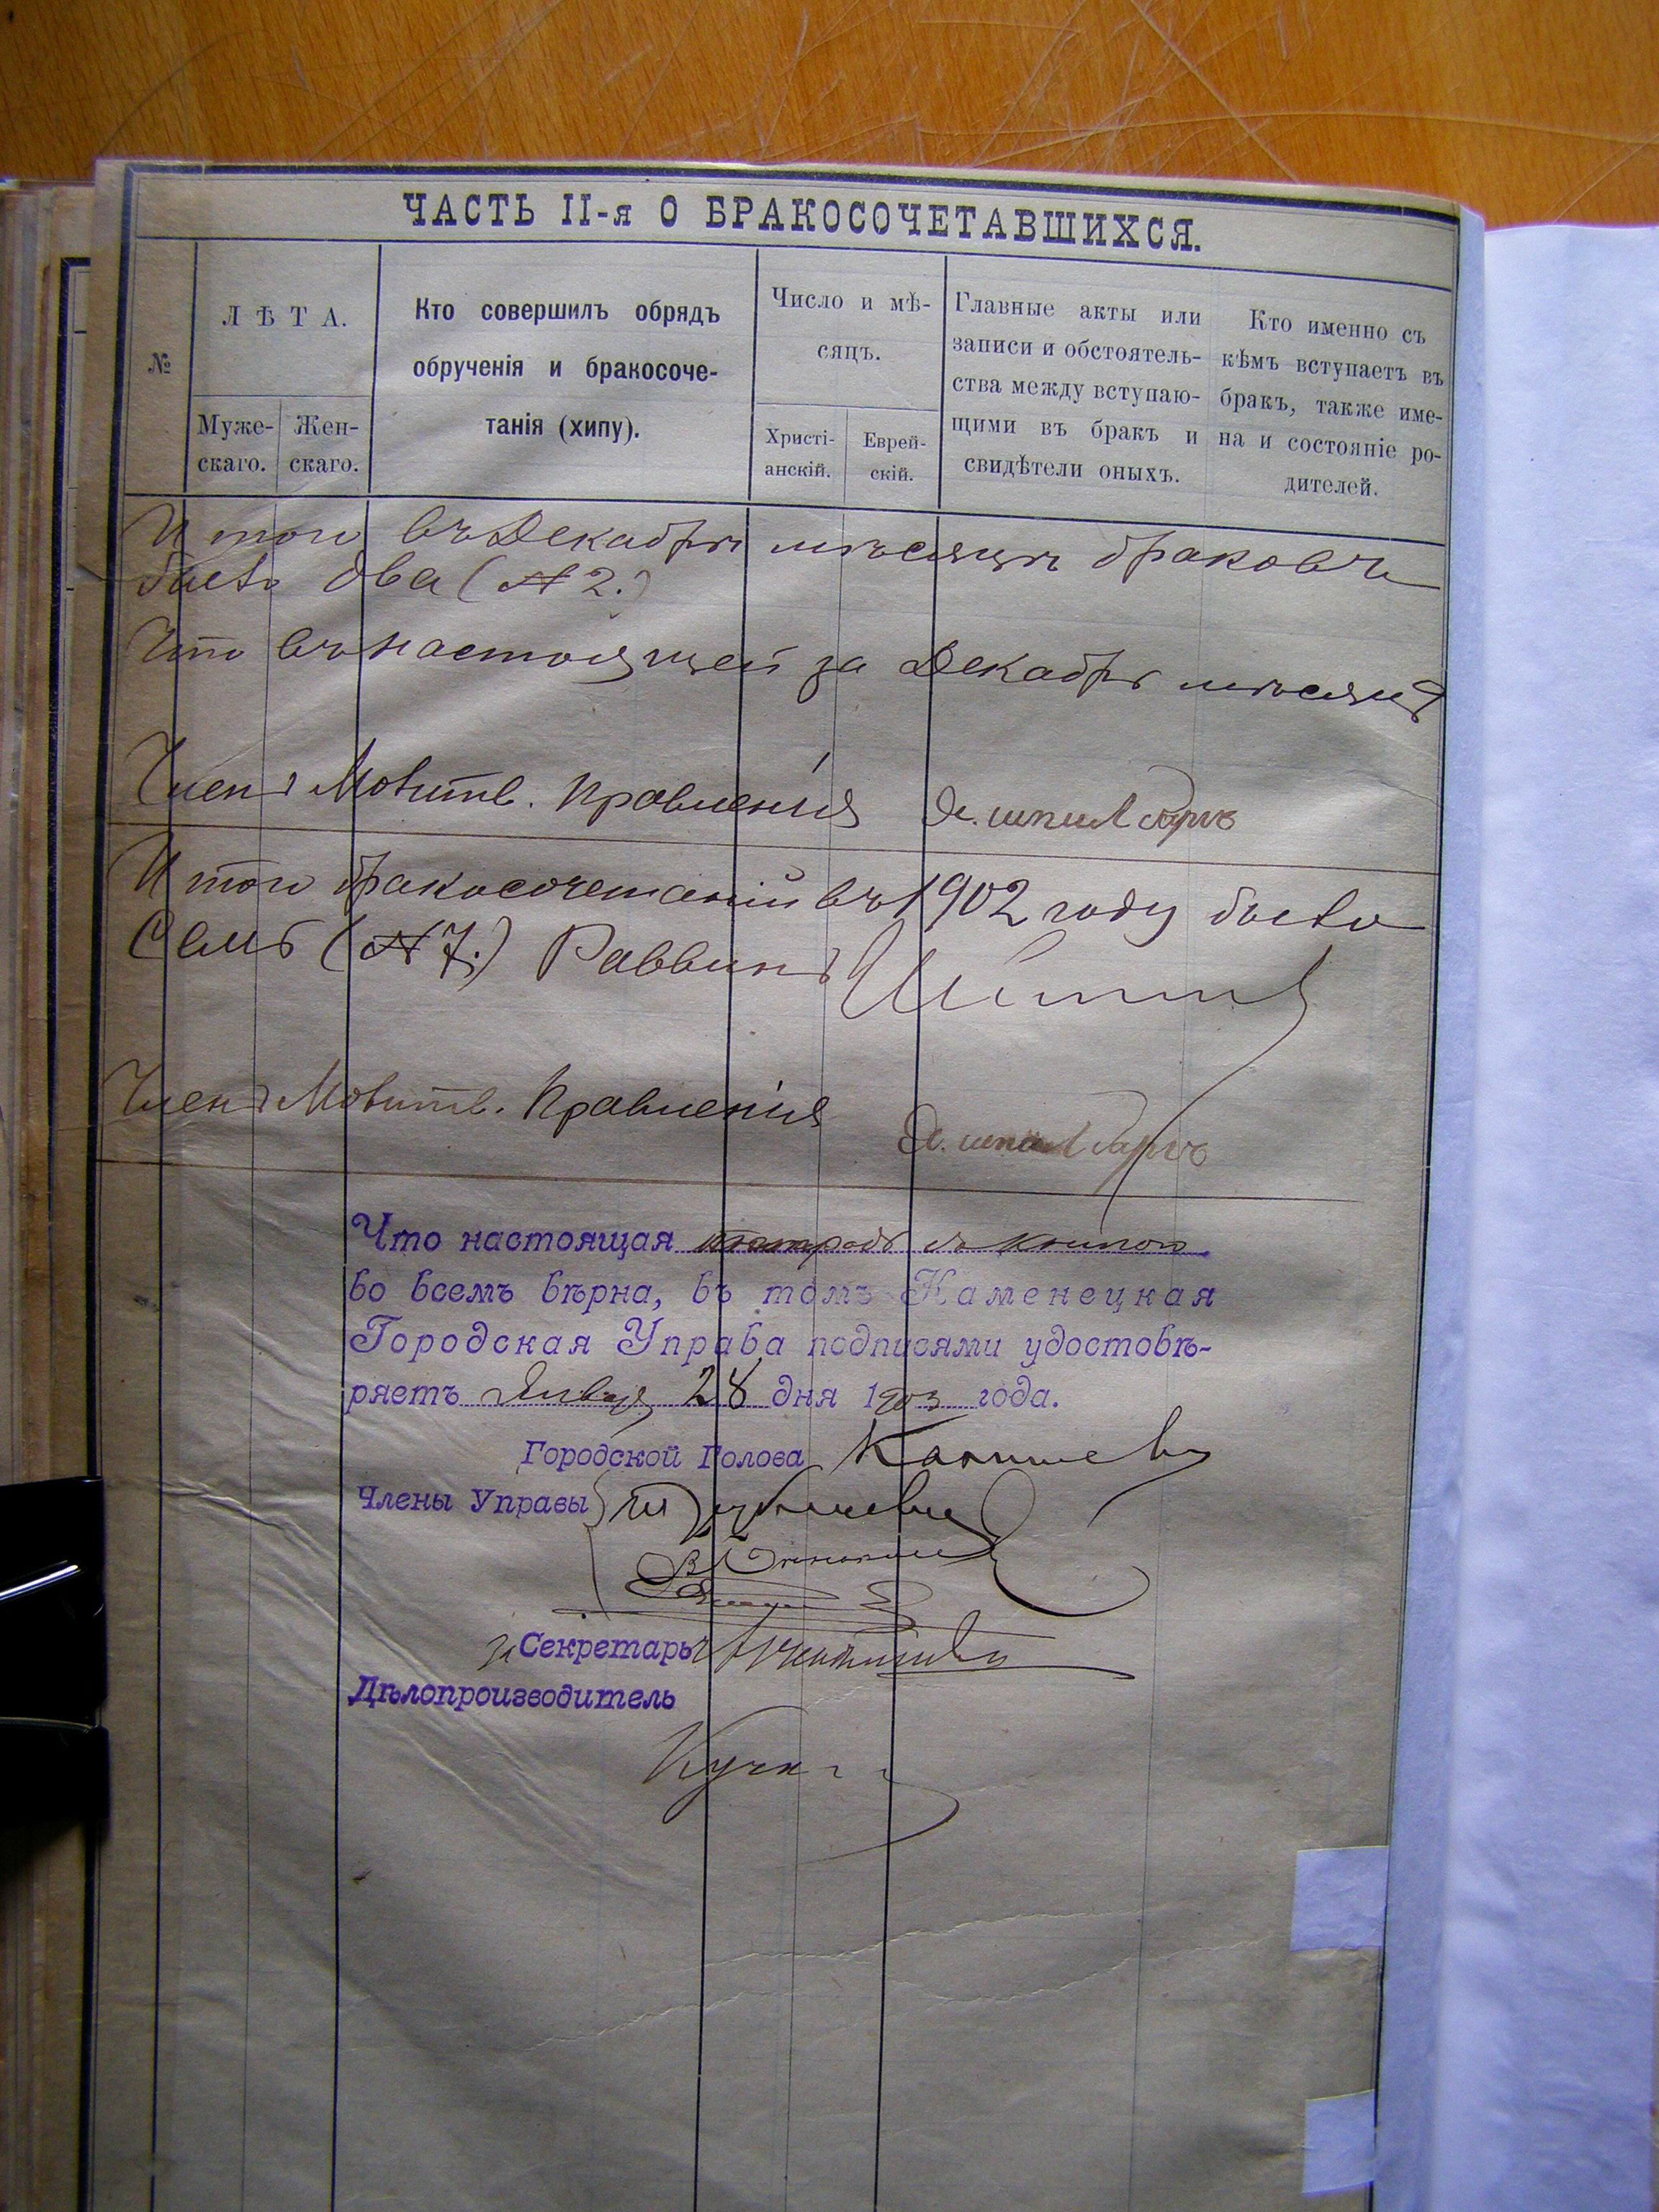 ЧАСТЬ II-я О БРАКОСОЧЕТАВШИХСЯ.
№
ЛѢТА.
Муже-
скаго.
Жен-
скаго.
Кто совершилъ обрядъ
обрученія и бракосоче-
танія (хипу).
Число и мѣ-
сяцъ.
Христі-
анскій.
Еврей-
скій.
Главные акты или
записи и обстоятель-
ства между вступаю-
щими въ бракъ и
свидѣтели оныхъ.
Кто именно съ
кѣмъ вступаетъ въ
бракъ, также име-
на и состояніе ро-
дителей.
Итого въ Декабрѣ мѣсяцѣ браковъ
было два (№ 2.)
Что въ настоящей за Декабрь мѣсяцъ
Членъ Молитв. Правленія
Итого бракосочетаній въ 1902 году было
Семь (№ 7.) Раввинъ
Членъ Молитв. Правленія
Что настоящая тетрадь съ книгою
во всемъ вѣрна, въ томъ Каменецкая
Городская Управа подписями удостовѣ-
ряетъ Января 28 дня 1903 года.
Городской Голова
Члены Управы
за Секретарь
Дѣлопроизводитель